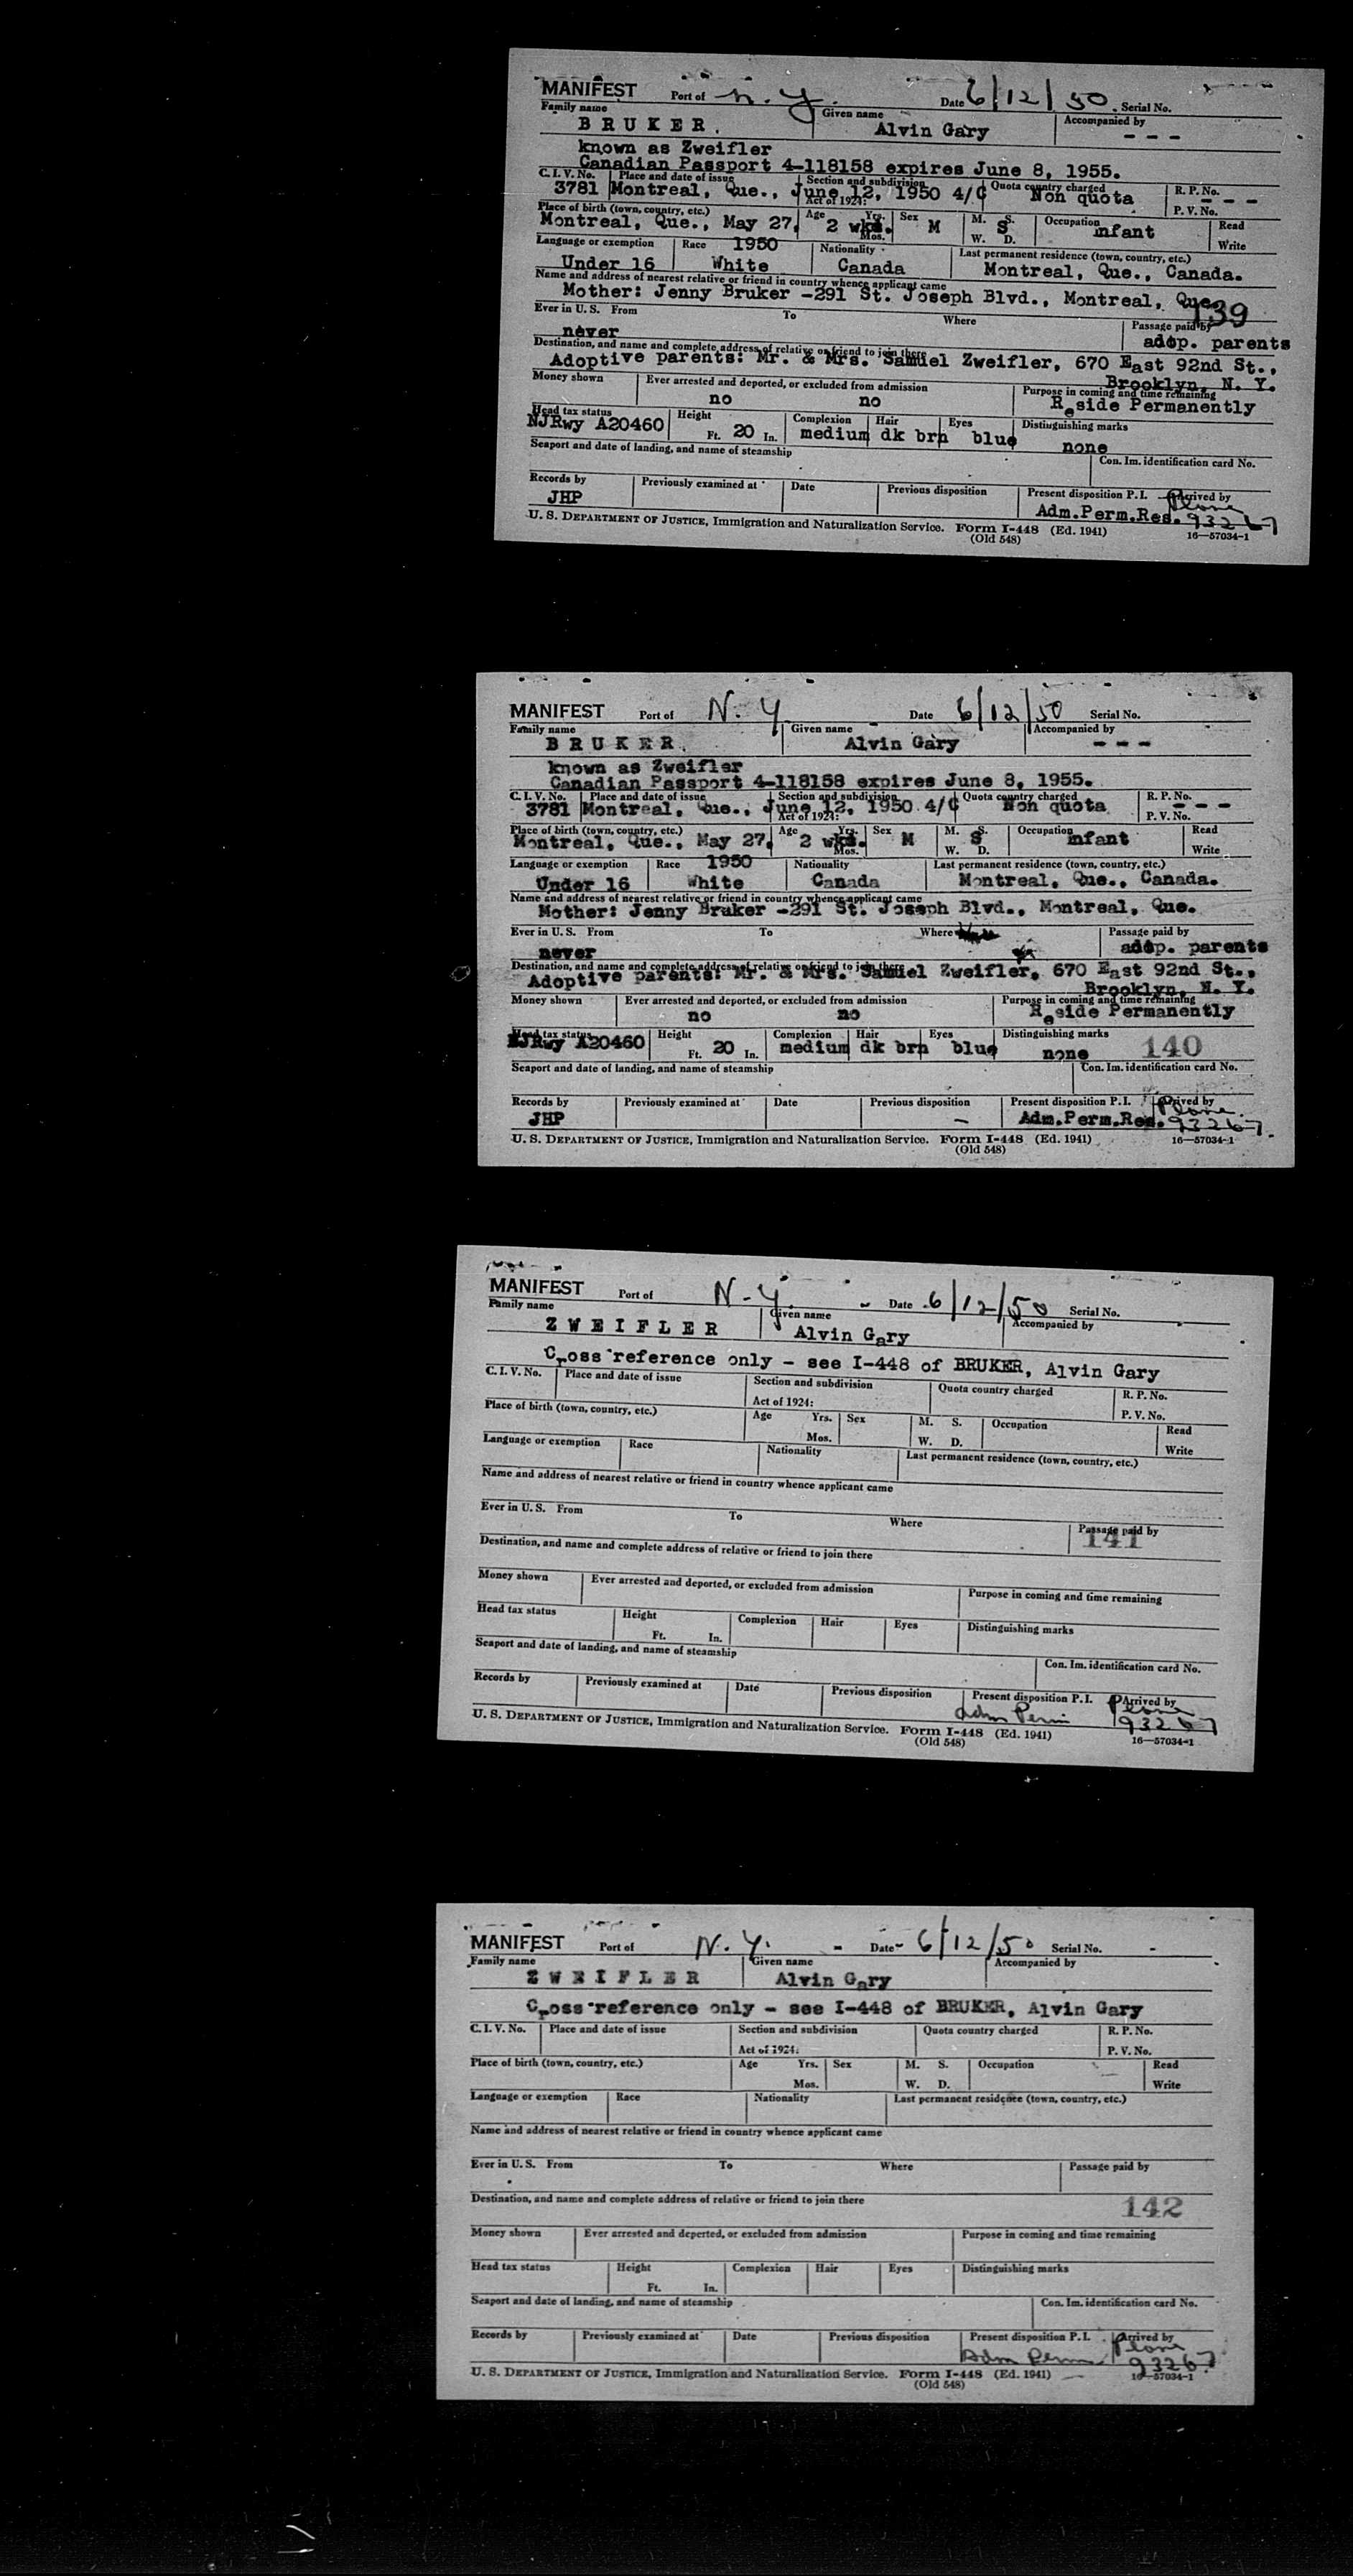 MANIFEST Port of N. Y. Date 6/12/50 Serial No.
Family name Given name Accompanied by
BRUKER, Alvin Gary - - -
known as Zweifler
Canadian Passport 4-118158 expires June 8, 1955.
C. I. V. No. Place and date of issue Section and subdivision Quota country charged R. P. No.
3781 Montreal, Que., June 12, 1950 4/C Non quota - - -
Act of 1924: P. V. No.
Place of birth (town, country, etc.) Age Yrs. Sex M. S. Occupation Read
Montreal, Que., May 27, 2 wks. M S infant
Mos. W. D. Write
Language or exemption Race 1950 Nationality Last permanent residence (town, country, etc.)
Under 16 White Canada Montreal, Que., Canada.
Name and address of nearest relative or friend in country whence applicant came
Mother: Jenny Bruker -291 St. Joseph Blvd., Montreal, Que.
139
Ever in U. S. From To Where Passage paid by
never adop. parents
Destination, and name and complete address of relative or friend to join there
Adoptive parents: Mr. & Mrs. Samuel Zweifler, 670 East 92nd St.,
Brooklyn, N. Y.
Money shown Ever arrested and deported, or excluded from admission Purpose in coming and time remaining
no no Reside Permanently
Head tax status Height Complexion Hair Eyes Distinguishing marks
NJRwy A20460 Ft. 20 In. medium dk brn blue none
Seaport and date of landing, and name of steamship Con. Im. identification card No.
Records by Previously examined at Date Previous disposition Present disposition P. I. Arrived by
JHP Adm.Perm.Res. Plane 93267
U. S. DEPARTMENT OF JUSTICE, Immigration and Naturalization Service. Form I-448 (Ed. 1941) 16—57034-1
(Old 548)
MANIFEST Port of N. Y. Date 6/12/50 Serial No.
Family name Given name Accompanied by
BRUKER, Alvin Gary - - -
known as Zweifler
Canadian Passport 4-118158 expires June 8, 1955.
C. I. V. No. Place and date of issue Section and subdivision Quota country charged R. P. No.
3781 Montreal, Que., June 12, 1950 4/C Non quota - - -
Act of 1924: P. V. No.
Place of birth (town, country, etc.) Age Yrs. Sex M. S. Occupation Read
Montreal, Que., May 27, 2 wks. M S infant
Mos. W. D. Write
Language or exemption Race 1950 Nationality Last permanent residence (town, country, etc.)
Under 16 White Canada Montreal, Que., Canada.
Name and address of nearest relative or friend in country whence applicant came
Mother: Jenny Bruker -291 St. Joseph Blvd., Montreal, Que.
Ever in U. S. From To Where Passage paid by
never adop. parents
Destination, and name and complete address of relative or friend to join there
Adoptive parents: Mr. & Mrs. Samuel Zweifler, 670 East 92nd St.,
Brooklyn, N. Y.
Money shown Ever arrested and deported, or excluded from admission Purpose in coming and time remaining
no no Reside Permanently
Head tax status Height Complexion Hair Eyes Distinguishing marks
NJRwy A20460 Ft. 20 In. medium dk brn blue none 140
Seaport and date of landing, and name of steamship Con. Im. identification card No.
Records by Previously examined at Date Previous disposition Present disposition P. I. Arrived by
JHP Adm.Perm.Res. Plane 93267
U. S. DEPARTMENT OF JUSTICE, Immigration and Naturalization Service. Form I-448 (Ed. 1941) 16—57034-1
(Old 548)
MANIFEST Port of N. Y. Date 6/12/50 Serial No.
Family name Given name Accompanied by
ZWEIFLER Alvin Gary
Cross reference only - see I-448 of BRUKER, Alvin Gary
C. I. V. No. Place and date of issue Section and subdivision Quota country charged R. P. No.
Act of 1924: P. V. No.
Place of birth (town, country, etc.) Age Yrs. Sex M. S. Occupation Read
Mos. W. D. Write
Language or exemption Race Nationality Last permanent residence (town, country, etc.)
Name and address of nearest relative or friend in country whence applicant came
Ever in U. S. From To Where Passage paid by
141
Destination, and name and complete address of relative or friend to join there
Money shown Ever arrested and deported, or excluded from admission Purpose in coming and time remaining
Head tax status Height Complexion Hair Eyes Distinguishing marks
Ft. In.
Seaport and date of landing, and name of steamship Con. Im. identification card No.
Records by Previously examined at Date Previous disposition Present disposition P. I. Arrived by
Adm Perm Plane 93267
U. S. DEPARTMENT OF JUSTICE, Immigration and Naturalization Service. Form I-448 (Ed. 1941) 16—57034-1
(Old 548)
MANIFEST Port of N. Y. Date 6/12/50 Serial No.
Family name Given name Accompanied by
ZWEIFLER Alvin Gary
Cross reference only - see I-448 of BRUKER, Alvin Gary
C. I. V. No. Place and date of issue Section and subdivision Quota country charged R. P. No.
Act of 1924: P. V. No.
Place of birth (town, country, etc.) Age Yrs. Sex M. S. Occupation Read
Mos. W. D. Write
Language or exemption Race Nationality Last permanent residence (town, country, etc.)
Name and address of nearest relative or friend in country whence applicant came
Ever in U. S. From To Where Passage paid by
Destination, and name and complete address of relative or friend to join there
142
Money shown Ever arrested and deported, or excluded from admission Purpose in coming and time remaining
Head tax status Height Complexion Hair Eyes Distinguishing marks
Ft. In.
Seaport and date of landing, and name of steamship Con. Im. identification card No.
Records by Previously examined at Date Previous disposition Present disposition P. I. Arrived by
Adm Perm Plane 93267
U. S. DEPARTMENT OF JUSTICE, Immigration and Naturalization Service. Form I-448 (Ed. 1941) 16—57034-1
(Old 548)